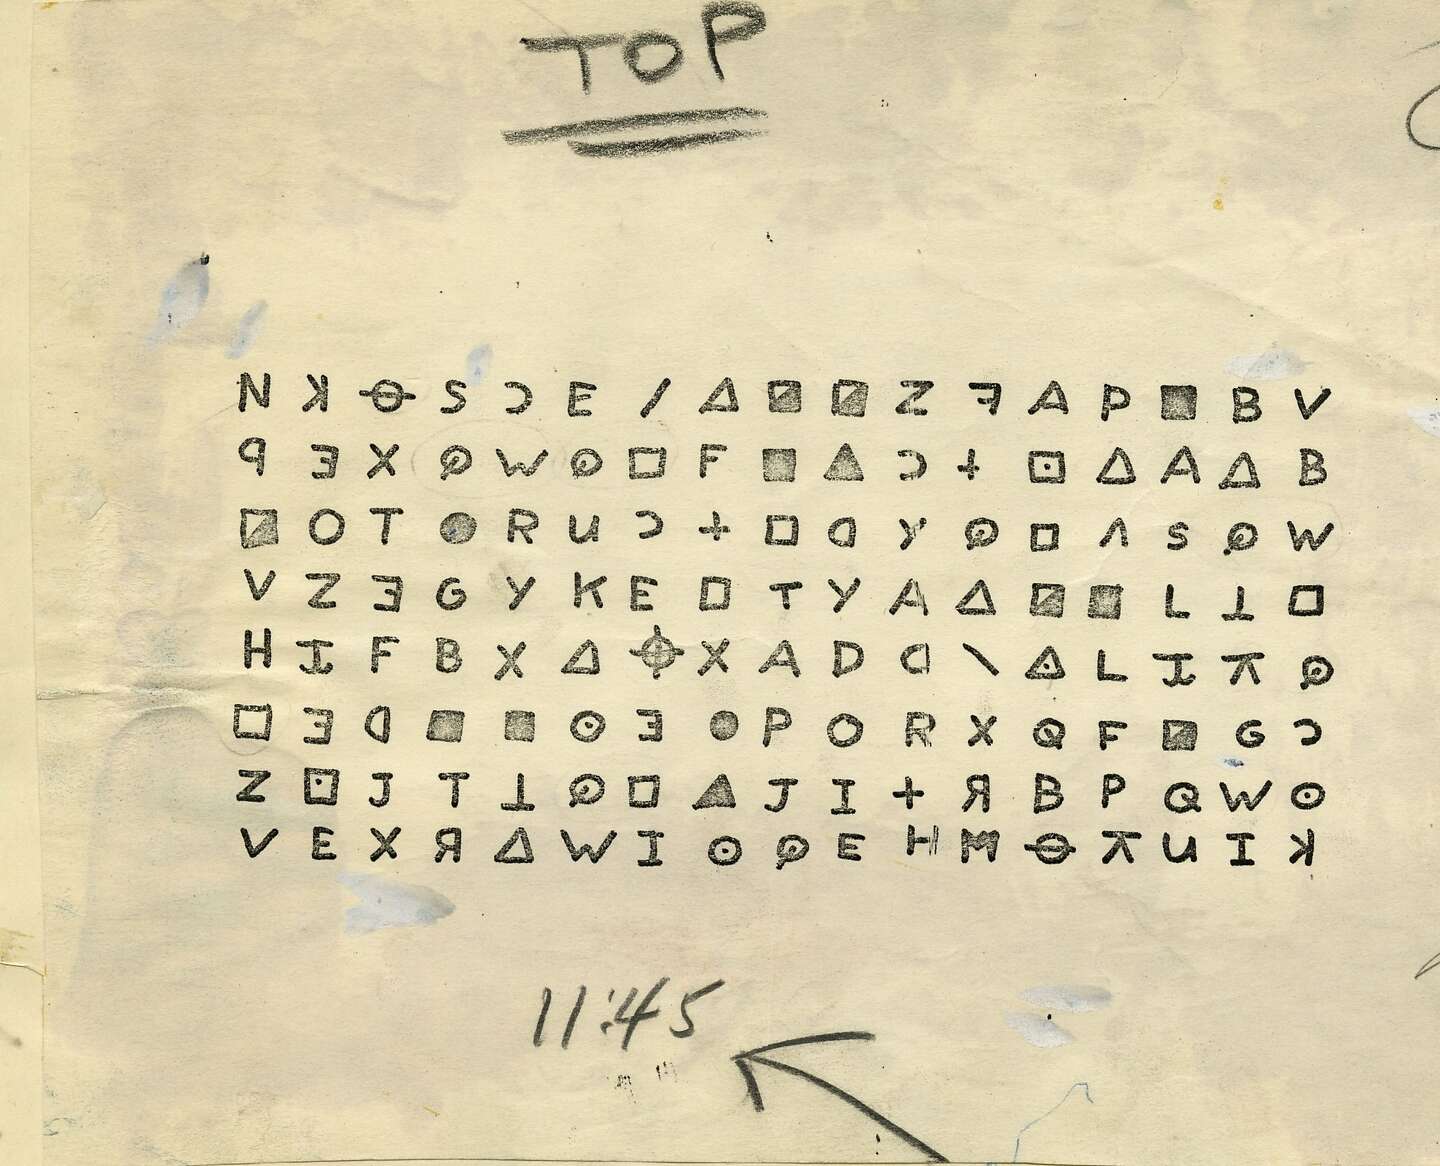 TOP
N ꓘ ⊖ S Ɔ E / △ ◪ ◪ Z ꟻ A P ■ B V
q Ǝ X ҩ W ⊙ □ F ■ ▲ Ɔ + ⊡ △ A △ B
◪ O T ● R U Ɔ + □ ᗡ Y ҩ □ Λ S ҩ W
V Z Ǝ G Y K E □ T Y A △ ◪ ■ L ⊥ □
H I F B X △ ⌖ X A D ᗡ \ ◬ L I ⊼ ҩ
□ Ǝ ᗡ ■ ■ ⊙ Ǝ ● P O R X Q F ◪ G Ɔ
Z ⊡ J T ⊥ ҩ □ ▲ J I + Я B P Q W ⊙
V E X Я △ W I ⊙ ҩ E H M ⊖ ⊼ U I ꓘ
11:45